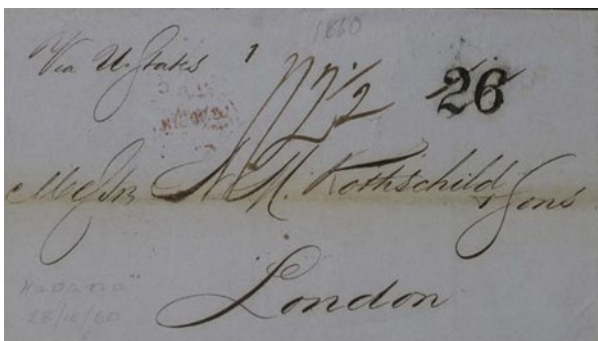 1860
Via U. States 1
1/2 26
Messrs N. M. Rothschild & Sons
London
Havana
28/10/60